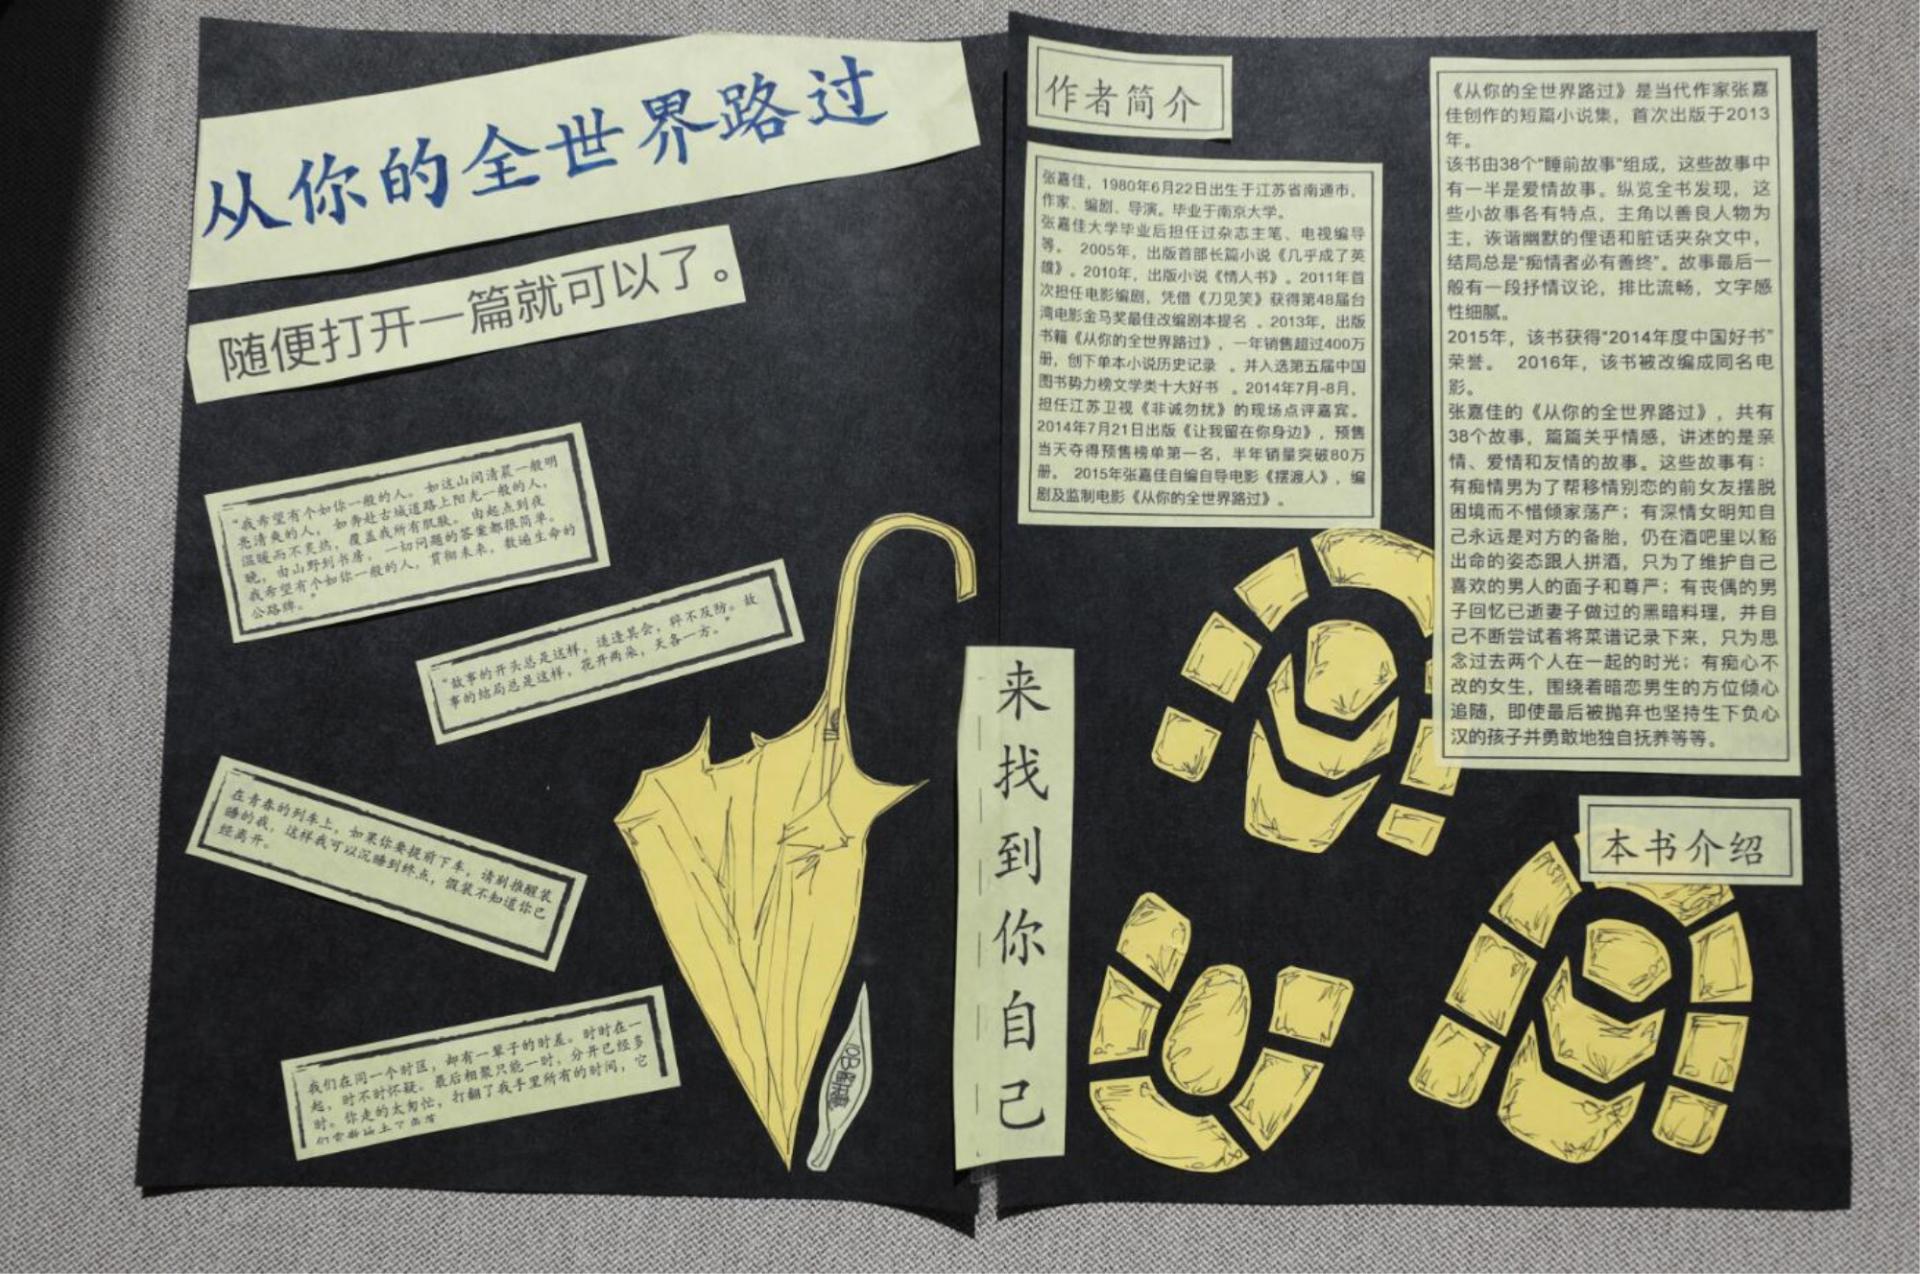 从你的全世界路过
随便打开一篇就可以了。
“我希望有个如你一般的人。如这山间清晨一般明
亮清爽的人，如奔赴古城道路上阳光一般的人，
温暖而不炙热，覆盖我所有肌肤。由起点到夜
晚，由山野到书房，一切问题的答案都很简单。
我希望有个如你一般的人，贯彻未来，数遍生命的
公路牌。”
“故事的开头总是这样，适逢其会，猝不及防。故
事的结局总是这样，花开两朵，天各一方。”
在青春的列车上，如果你要提前下车，请别推醒装
睡的我，这样我可以沉睡到终点，假装不知道你已
经离开。
我们在同一个时区，却有一辈子的时差。时时在一
起，时不时怀疑。最后相聚只能一时，分开已经多
时。你走的太匆忙，打翻了我手里所有的时间，它
来找到你自己
作者简介
张嘉佳，1980年6月22日出生于江苏省南通市，
作家、编剧、导演。毕业于南京大学。
张嘉佳大学毕业后担任过杂志主笔、电视编导
等。 2005年，出版首部长篇小说《几乎成了英
雄》。2010年，出版小说《情人书》。2011年首
次担任电影编剧，凭借《刀见笑》获得第48届台
湾电影金马奖最佳改编剧本提名 。2013年，出版
书籍《从你的全世界路过》，一年销售超过400万
册，创下单本小说历史记录 。并入选第五届中国
图书势力榜文学类十大好书 。2014年7月-8月，
担任江苏卫视《非诚勿扰》的现场点评嘉宾。
2014年7月21日出版《让我留在你身边》，预售
当天夺得预售榜单第一名，半年销量突破80万
册。 2015年张嘉佳自编自导电影《摆渡人》，编
剧及监制电影《从你的全世界路过》。
《从你的全世界路过》是当代作家张嘉
佳创作的短篇小说集，首次出版于2013
年。
该书由38个“睡前故事”组成，这些故事中
有一半是爱情故事。纵览全书发现，这
些小故事各有特点，主角以善良人物为
主，诙谐幽默的俚语和脏话夹杂文中，
结局总是“痴情者必有善终”。故事最后一
般有一段抒情议论，排比流畅，文字感
性细腻。
2015年，该书获得“2014年度中国好书”
荣誉。 2016年，该书被改编成同名电
影。
张嘉佳的《从你的全世界路过》，共有
38个故事，篇篇关乎情感，讲述的是亲
情、爱情和友情的故事。这些故事有：
有痴情男为了帮移情别恋的前女友摆脱
困境而不惜倾家荡产；有深情女明知自
己永远是对方的备胎，仍在酒吧里以豁
出命的姿态跟人拼酒，只为了维护自己
喜欢的男人的面子和尊严；有丧偶的男
子回忆已逝妻子做过的黑暗料理，并自
己不断尝试着将菜谱记录下来，只为思
念过去两个人在一起的时光；有痴心不
改的女生，围绕着暗恋男生的方位倾心
追随，即使最后被抛弃也坚持生下负心
汉的孩子并勇敢地独自抚养等等。
本书介绍